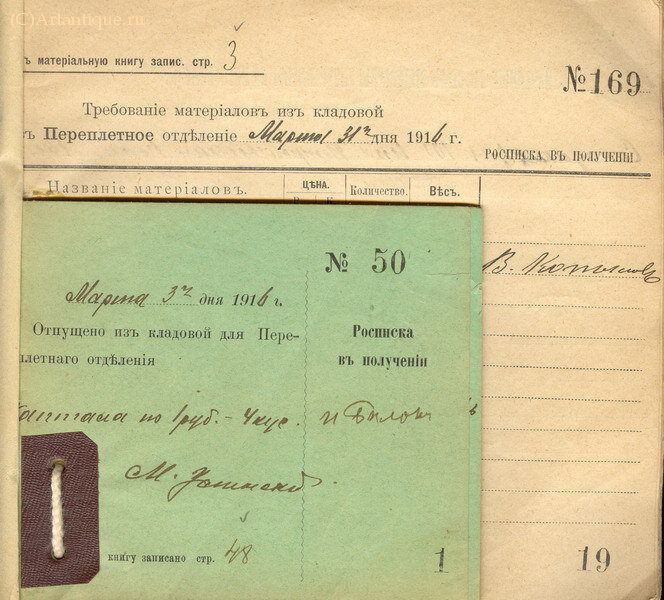 (C)Arlantique.ru
ъ матеріальную книгу запис. стр. 3
№ 169
Требованіе матеріаловъ изъ кладовой
въ Переплетное отдѣленіе Марта 31го дня 1916 г.
РОСПИСКА ВЪ ПОЛУЧЕНІИ
Названіе матеріаловъ.
ЦѢНА.
Количество.
ВѢСЪ.
В.
№ 50
Марта 3го дня 1916 г.
Отпущено изъ кладовой для Пере-
плетнаго отдѣленія
Росписка
въ полученіи
по 1 руб. - 4 кус.
М.
книгу записано стр. 48
1
19